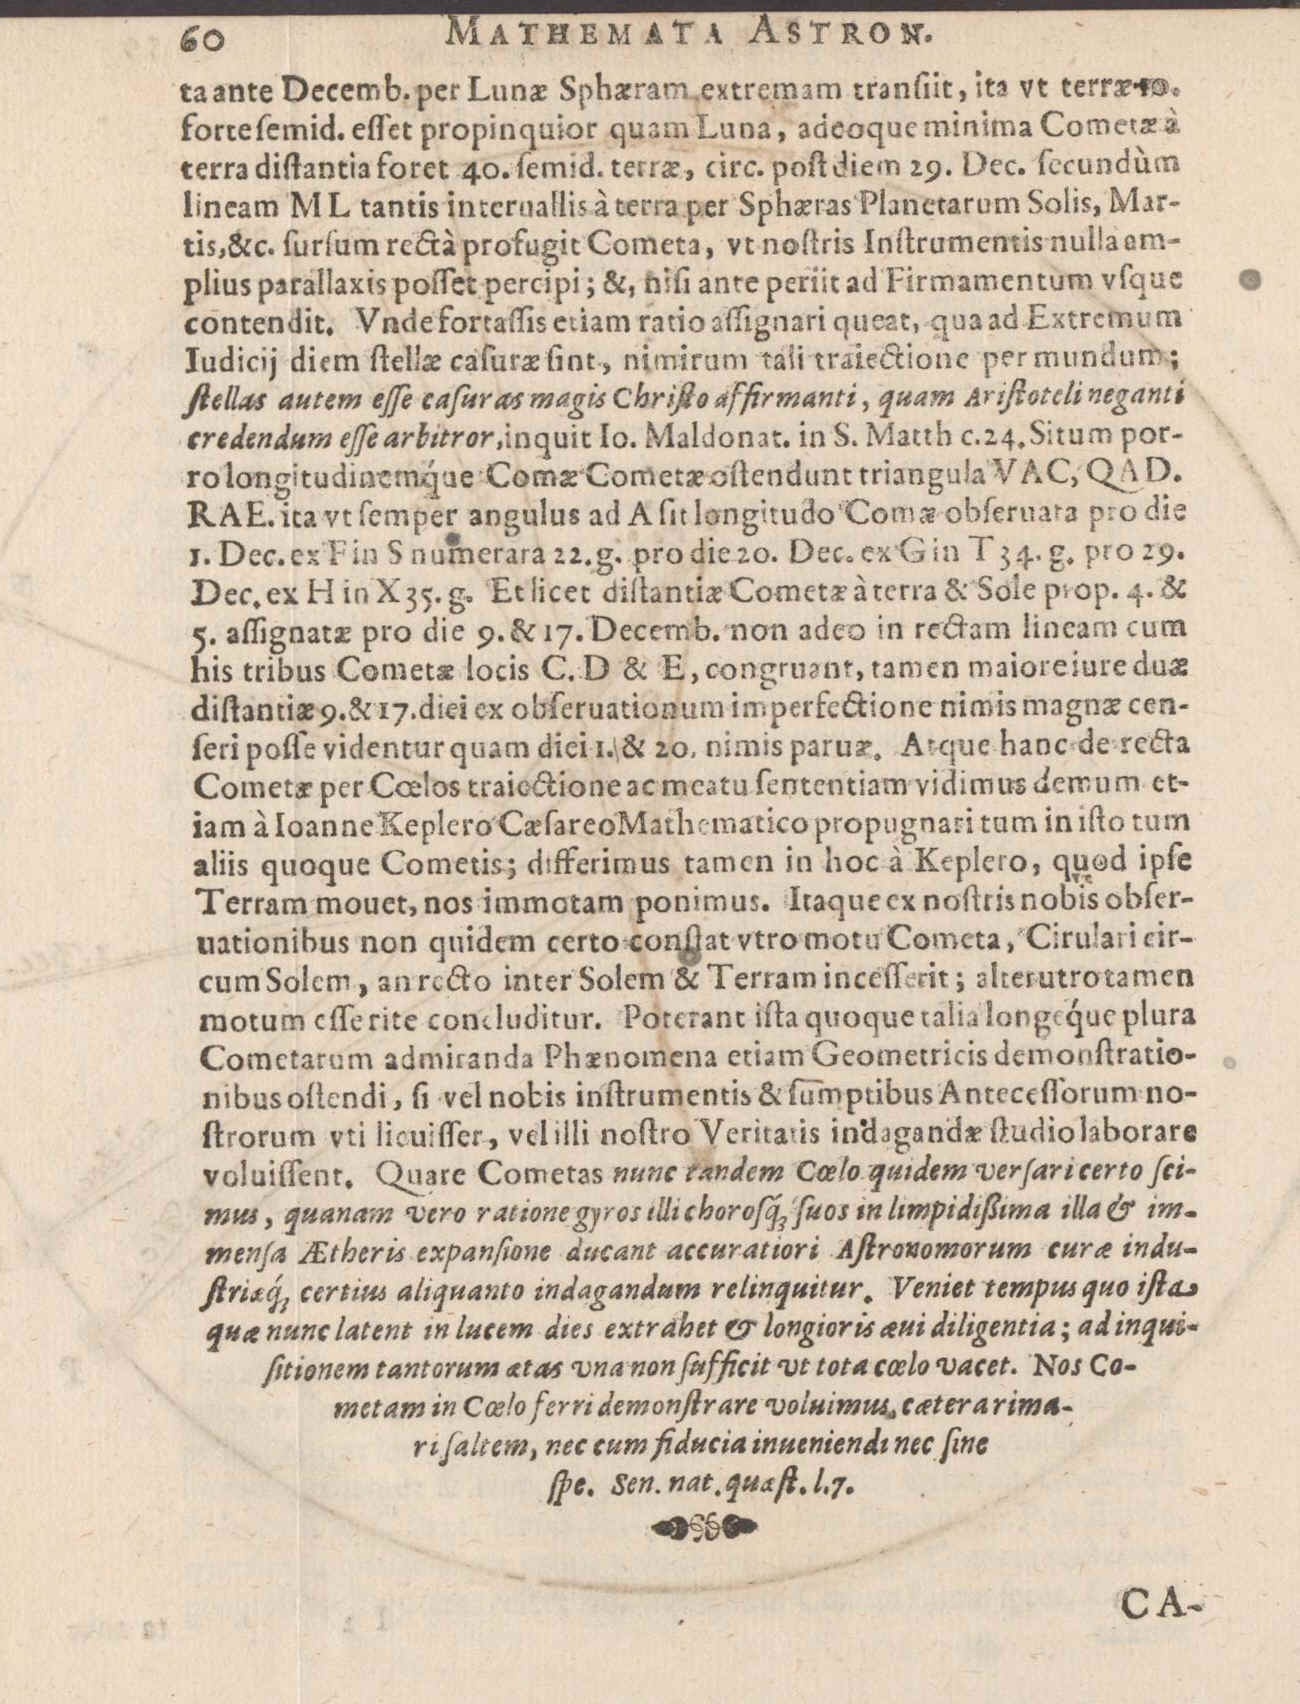 60 MATHEMATA ASTRON.
ta ante Decemb. per Lunæ Sphæram extremam transiit, ita vt terræ 10.
forte semid. esset propinquior quam Luna, adeoque minima Cometæ à
terra distantia foret 40. semid. terræ, circ. post diem 29. Dec. secundùm
lineam ML tantis interuallis à terra per Sphæras Planetarum Solis, Mar-
tis, &c. sursum rectà profugit Cometa, vt nostris Instrumentis nulla am-
plius parallaxis posset percipi; &, nisi ante periit ad Firmamentum vsque
contendit. Vnde fortassis etiam ratio assignari queat, qua ad Extremum
Iudicij diem stellæ casuræ sint, nimirum tali traiectione per mundum;
stellas autem esse casuras magis Christo affirmanti, quam Aristoteli neganti
credendum esse arbitror, inquit Io. Maldonat. in S. Matth c. 24. Situm por-
ro longitudinemq́ue Comæ Cometæ ostendunt triangula VAC, QAD.
RAE. ita vt semper angulus ad A sit longitudo Comæ obseruata pro die
1. Dec. ex F in S numerara 22. g. pro die 20. Dec. ex G in T 34. g. pro 29.
Dec. ex H in X 35. g. Et licet distantiæ Cometæ à terra & Sole prop. 4. &
5. assignatæ pro die 9. & 17. Decemb. non adeo in rectam lineam cum
his tribus Cometæ locis C. D & E, congruant, tamen maiore iure duæ
distantiæ 9. & 17. diei ex obseruationum imperfectione nimis magnæ cen-
seri posse videntur quam diei 1. & 20. nimis paruæ. Atque hanc de recta
Cometæ per Cœlos traiectione ac meatu sententiam vidimus demum et-
iam à Ioanne Keplero Cæsareo Mathematico propugnari tum in isto tum
aliis quoque Cometis; differimus tamen in hoc à Keplero, quod ipse
Terram mouet, nos immotam ponimus. Itaque ex nostris nobis obser-
uationibus non quidem certo constat vtro motu Cometa, Cirulari cir-
cum Solem, an recto inter Solem & Terram incesserit; alterutro tamen
motum esse rite concluditur. Poterant ista quoque talia longeq́ue plura
Cometarum admiranda Phænomena etiam Geometricis demonstratio-
nibus ostendi, si vel nobis instrumentis & sum̄ptibus Antecessorum no-
strorum vti licuisset, vel illi nostro Veritatis indagandæ studio laborare
voluissent. Quare Cometas nunc tandem Cœlo quidem versari certo sci-
mus, quanam vero ratione gyros illi chorosq́; suos in limpidißima illa & im-
mensa Ætheris expansione ducant accuratiori Astronomorum curæ indu-
striæq́; certius aliquanto indagandum relinquitur. Veniet tempus quo ista
quæ nunc latent in lucem dies extrahet & longioris æui diligentia; ad inqui-
sitionem tantorum ætas vna non sufficit vt tota cœlo vacet. Nos Co-
metam in Cœlo ferri demonstrare voluimus, cætera rima-
ri saltem, nec cum fiducia inueniendi nec sine
spe. Sen. nat. quæst. l. 7.
CA-